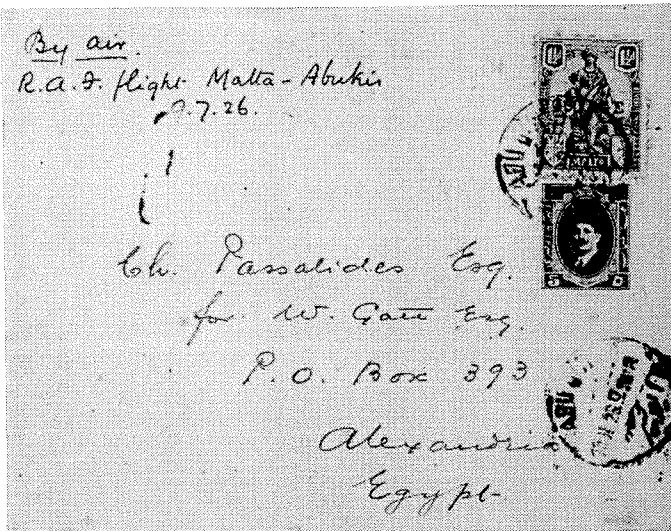 By air.
R.A.F. flight Malta - Abukir
.7.26.
Ch. Passalides Esq.
for W. Gatt Esq.
P.O. Box 393
Alexandria
Egypt
MALTA
5
ABU
ABU